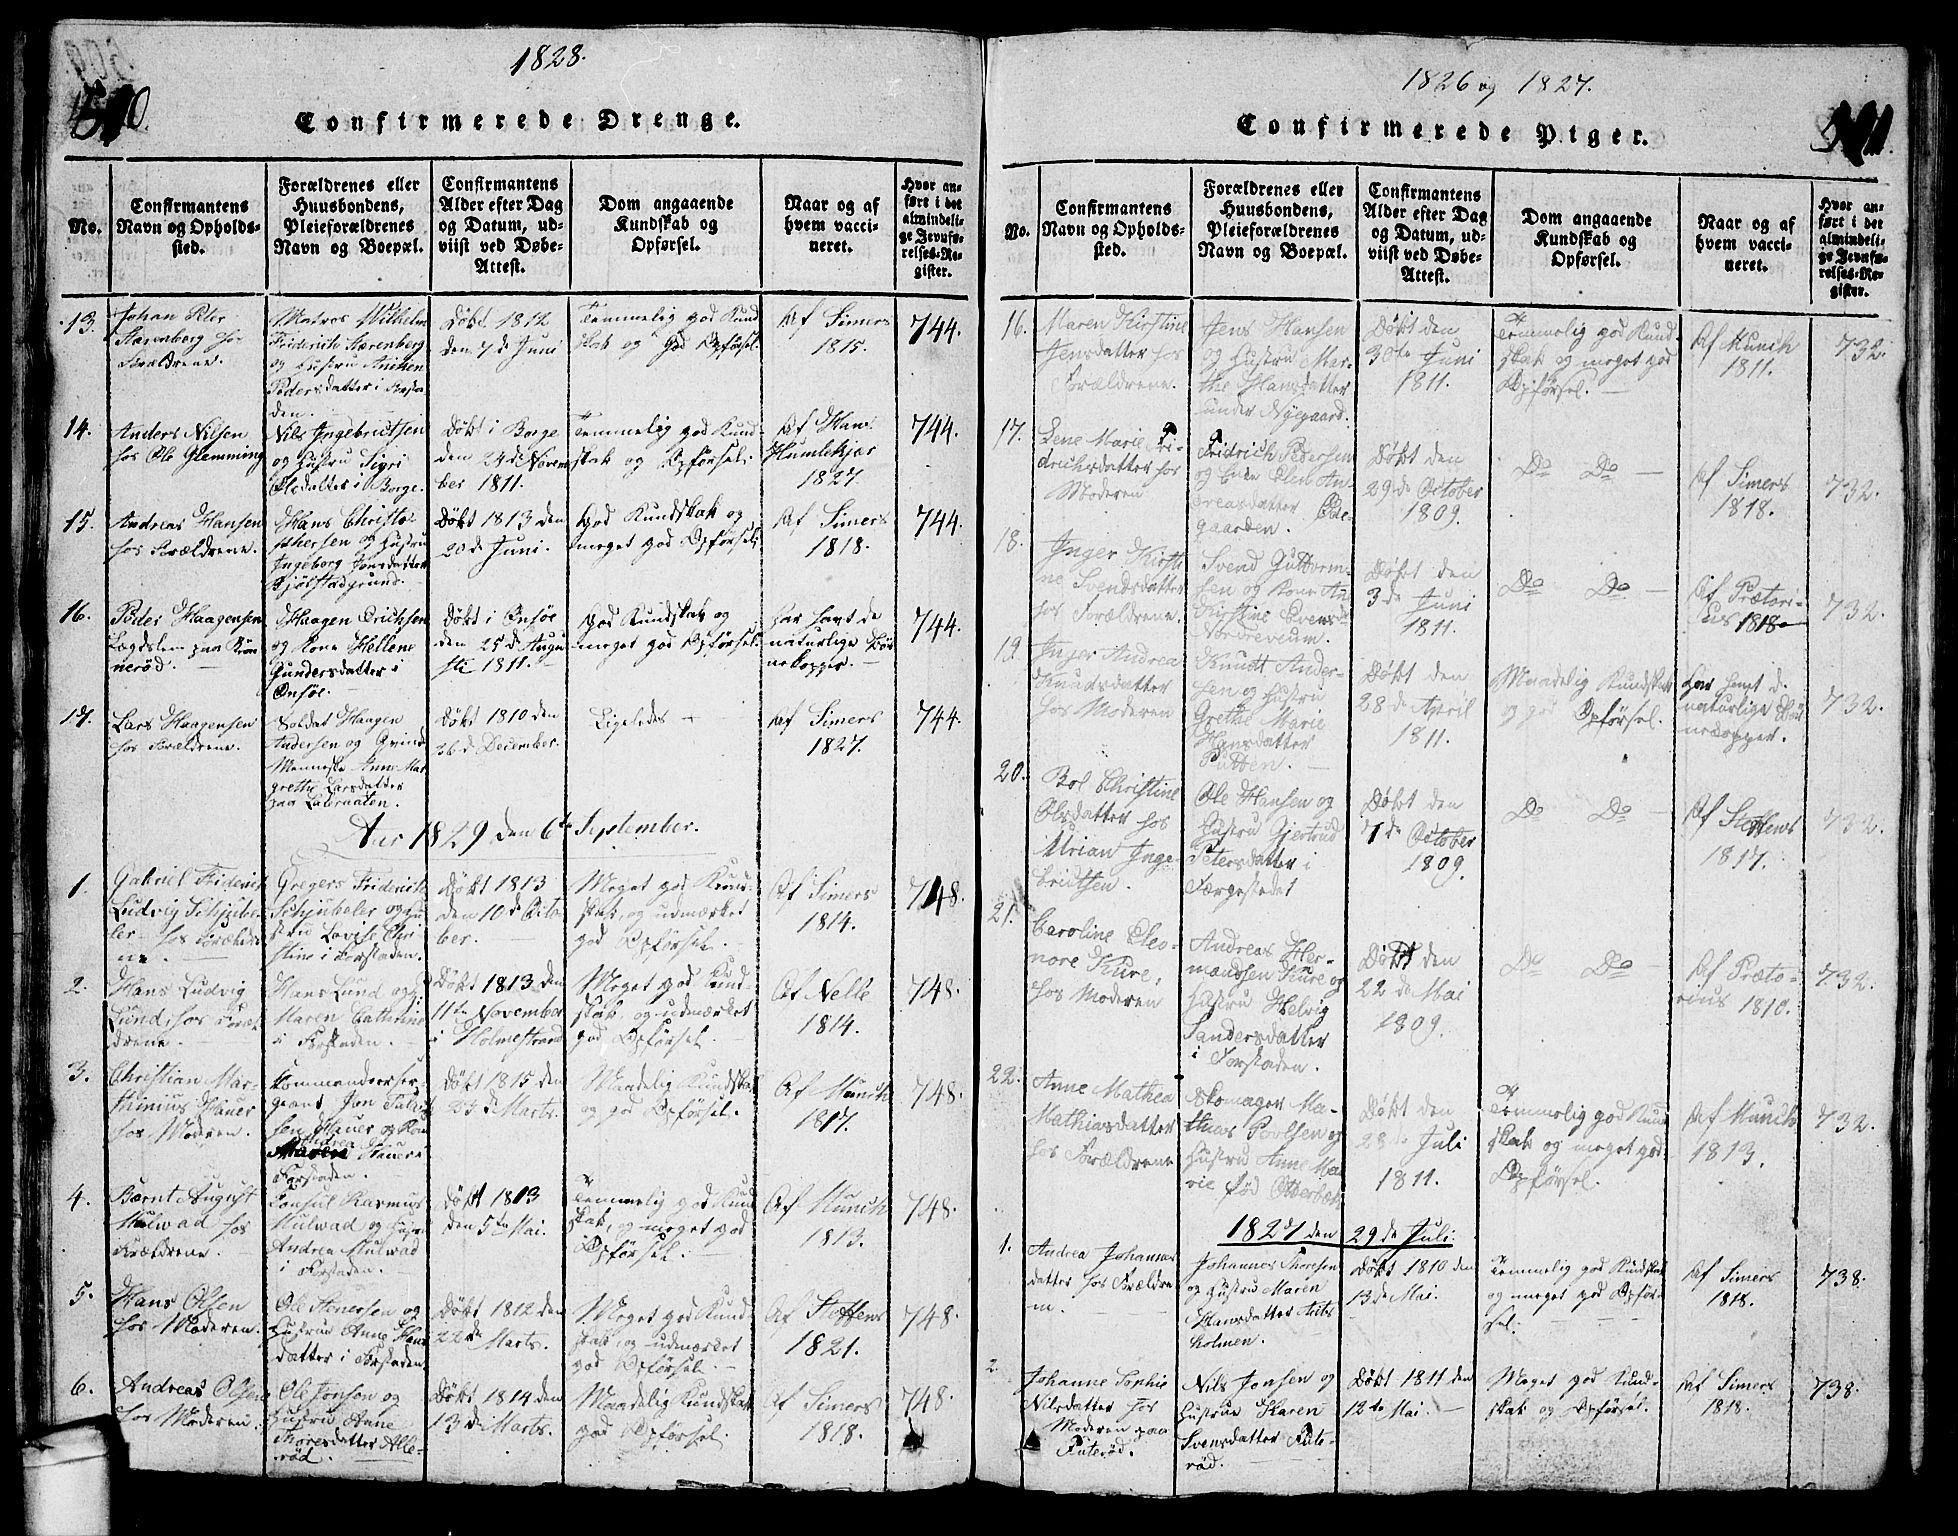 1828.
510.
Confirmerede Drenge.
No.
Confirmantens
Navn og Opholds-
sted.
Forældrenes eller
Huusbondens,
Pleieforældrenes
Navn og Boepæl.
Confirmantens
Alder efter Dag
og Datum, ud-
viist ved Døbe-
Attest.
Dom angaaende
Kundskab og
Opførsel.
Naar og af
hvem vacci-
neret.
Hvor an-
ført i det
almindeli-
ge Jevnfø-
relses-Re-
gister.
13.
Johan Peter
Færenberg hos
Forældrene.
Matros Wilhelm
Friderich Færenberg
og Hustru Anichen
Pedersdatter i Forsta
den.
Døbt 1812
den 7de Juni
Temmelig god Kund
skab og God Opførsel.
Af Simers
1815.
744.
14.
Anders Nilsen
hos Ole Glemming
Nils Ingebrictsen
og Hustru Sigri
Olsdatter i Borge.
Døbt i Borge
den 24de Novem
ber 1811.
Temmelig god Kund-
skab og Opførsel.
Af Hans
Humlekjær
1827.
744.
15.
Andreas Hansen
hos Forældrene.
Hans Christo-
phersen og Hustru
Ingeborg Jonsdatter
Døbt 1813 den
20de Juni.
God Kundskab og
meget god Opførsel.
Af Simers
1818.
744.
16.
Peder Haagensen
Lægdslem paa Krön
nerød.
Haagen Erichsen
og Kone Hellene
Gundersdatter i
Onsøe.
Døbt i Onsøe
den 25de Augu
sti 1811.
God Kundskab og
meget god Opførsel.
har havt de
naturlige Bør
nekopper.
744.
17.
Lars Haagensen
hos Forældrene.
Soldat Haagen
Andersen og Qvinde
Menneske Anne Mar
grethe Larsdatter
paa
Døbt 1810 den
26de December.
Ligeledes
Af Simers
1827.
744.
Aar 1829 den 6te September.
1.
Gabriel Friderich
Ludvig Schjube-
ler hos Forældre
ne.
Gregers Friderich
Schjubeler og Hu-
stru Lovise Chri
stine i Forstaden.
Døbt 1813
den 10de Octo
ber.
Meget god Kund-
skab, og udmærket
god Opførsel.
Af Simers
1814.
748.
2.
Hans Ludvig
Lund, hos Foræl
drene.
Hans Lund og
Maren Cathrine
i Forstaden.
Døbt 1813 den
11te November
i Holmestrand
Meget god Kund-
skab, og udmærket
god Opførsel.
Af Nelle
1814.
748.
3.
Christian Mar-
thinius Hauer
hos Moderen.
Kommandeerser-
geant Jon
sen Hauer og Kone
Andrea Hauer i
Forstaden.
Døbt 1815 den
23de Marts.
Maadelig Kundskab
og god Opførsel.
Af Munch
1817.
748.
4.
Bernt August
Mulwad hos
Forældrene.
Consul Rasmus
Mulwad og Hustru
Andrea Mulwad
i Forstaden.
Døbt 1813
den 5te Mai.
Temmelig god Kund
skab, og meget god
Opførsel.
Af Munch
1813.
748.
5.
Hans Olsen
hos Moderen.
Ole Stenersen og
Hustrue Anne Hans
datter i Forstaden
Døbt 1812 den
22de Marts.
Meget god Kund
skab, og udmærket
god Opførsel.
Af Steffens
1821.
748.
6.
Andreas Olsen
hos Moderen.
Ole Jonsen og
Hustrue Anne
Thoresdatter Alle-
rød.
Døbt 1814 den
13de Marts.
Maadelig Kundskab
god Opførsel.
Af Simers
1818.
748.
1826 og 1827.
511.
Confirmerede Piger.
No.
Confirmantens
Navn og Opholds-
sted.
Forældrenes eller
Huusbondens,
Pleieforældrenes
Navn og Boepæl.
Confirmantens
Alder efter Dag
og Datum, ud-
viist ved Døbe-
Attest.
Dom angaaende
Kundskab og
Opførsel.
Naar og af
hvem vacci-
neret.
Hvor an-
ført i det
almindeli-
ge Jevnfø-
relses-Re-
gister.
16.
Maren Kirstine
Jensdatter hos
Forældrene.
Jens Hansen
og Hustru Mar-
the Hansdatter
under Nyegaard.
Døbt den
30te Juni
1811.
Temmelig god Kund
skab og meget god
Opførsel.
Af Munch
1811.
732.
17.
Lene Marie Fri-
drichsdatter hos
Moderen
Fridrich Pedersen
og Enke Elen An
dreasdatter Ode-
gaarden.
Døbt den
29de October
1809.
Do Do
Af Simers
1818.
732.
18.
Inger Kirsti
ne Svendsdatter
hos Forældrene.
Svend Guttorm-
sen og Kone An
Kirstine Evensd
Nordreveum.
Døbt den
3de Juni
1811.
Do Do
Af Prætori-
us 1818.
732.
19.
Inger Andrea
Knudsdatter
hos Moderen
Knudt Ander-
sen og Hustru
Grethe Marie
Hansdatter
Putten.
Døbt den
28de April
1811.
Maadelig Kundskab
og god Opførsel.
har havt de
naturlige Bør
nekopper.
732.
20.
Bol Christine
Olsdatter hos
Urian Inge-
brictsen.
Ole Hansen og
Hustru Gjertrud
Petersdatter i
Færgestedet
Døbt den
7de October
1809.
Do Do
Af Steffens
1817.
732.
21.
Caroline Eleo-
nore Kure,
hos Moderen
Andreas Her-
mandsen Kure og
Hustru Helvig
Sandersdatter
i Forstaden.
Døbt den
22de Mai
1809.
Do Do
Af Præto-
rius 1810.
732.
22.
Anne Mathea
Mathiasdatter
hos Forældrene
Skomager Ma-
thias Povlsen og
Hustru Anne Ma
rie fød Otterbech
Døbt den
28de Juli
1811.
Temmelig god Kund
skab og meget god
Opførsel.
Af Munch
1813.
732.
1827 den 29de Juli.
1.
Andrea Johannes
datter hos Forældre
ne.
Johannes Thoresen
og Hustru Maren
Hansdatter
holmen.
Døbt 1810 den
13de Mai.
Temmelig god Kundskab
og meget god Opfør-
sel.
Af Simers
1818.
738.
2.
Johanne Sophie
Nilsdatter hos
Moderen paa
Puterød.
Nils Jonsen og
Hustrue Karen
Svensdatter Pute-
rød.
Døbt 1811 den
12te Mai.
Meget god Kund-
skab og Opførsel.
Af Simers
1818.
738.